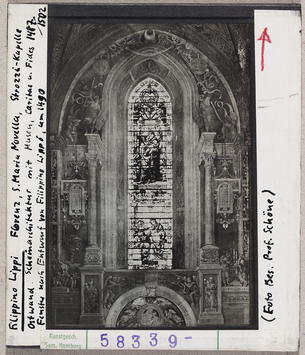 Filippino Lippi Florenz, S. Maria Novella, Strozzi-Kapelle
Ostwand Scheinarchitektur mit Musen, Caritas u. Fides 1487-
1502
Fenster nach Entwurf von Filippino Lippi, um 1490
(Foto Bes. Prof. Schöne)
Kunstgesch.
Sem. Hamburg
58339-